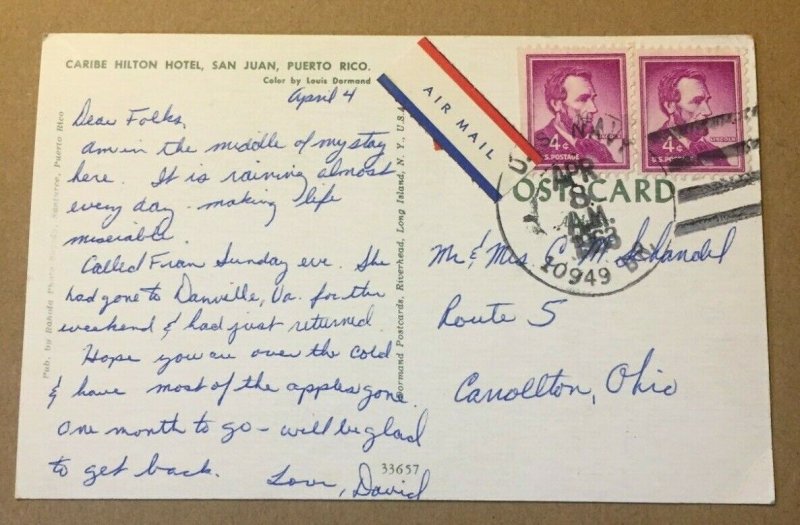 CARIBE HILTON HOTEL, SAN JUAN, PUERTO RICO.
Color by Louis Dormand
April 4
Dear Folks,
Am in the middle of my stay
here. It is raining almost
every day - making life
miserable.
Called Fran Sunday eve. She
had gone to Danville, Va. for the
weekend & had just returned.
Hope you are over the cold
& have most of the apples gone.
One month to go - will be glad
to get back.
Love, David
33657
Pub. by Rahola Photo Puerto Rico
Dormand Postcards, Riverhead, Long Island, N. Y., U.S.A.
AIR MAIL
4¢
U.S. POSTAGE
4¢
U.S. POSTAGE
LINCOLN
POSTCARD
U.S. NAVY
APR
8
A.M.
1963
10949 BR.
Mr & Mrs. C. M. Schandel
Route 5
Carrollton, Ohio